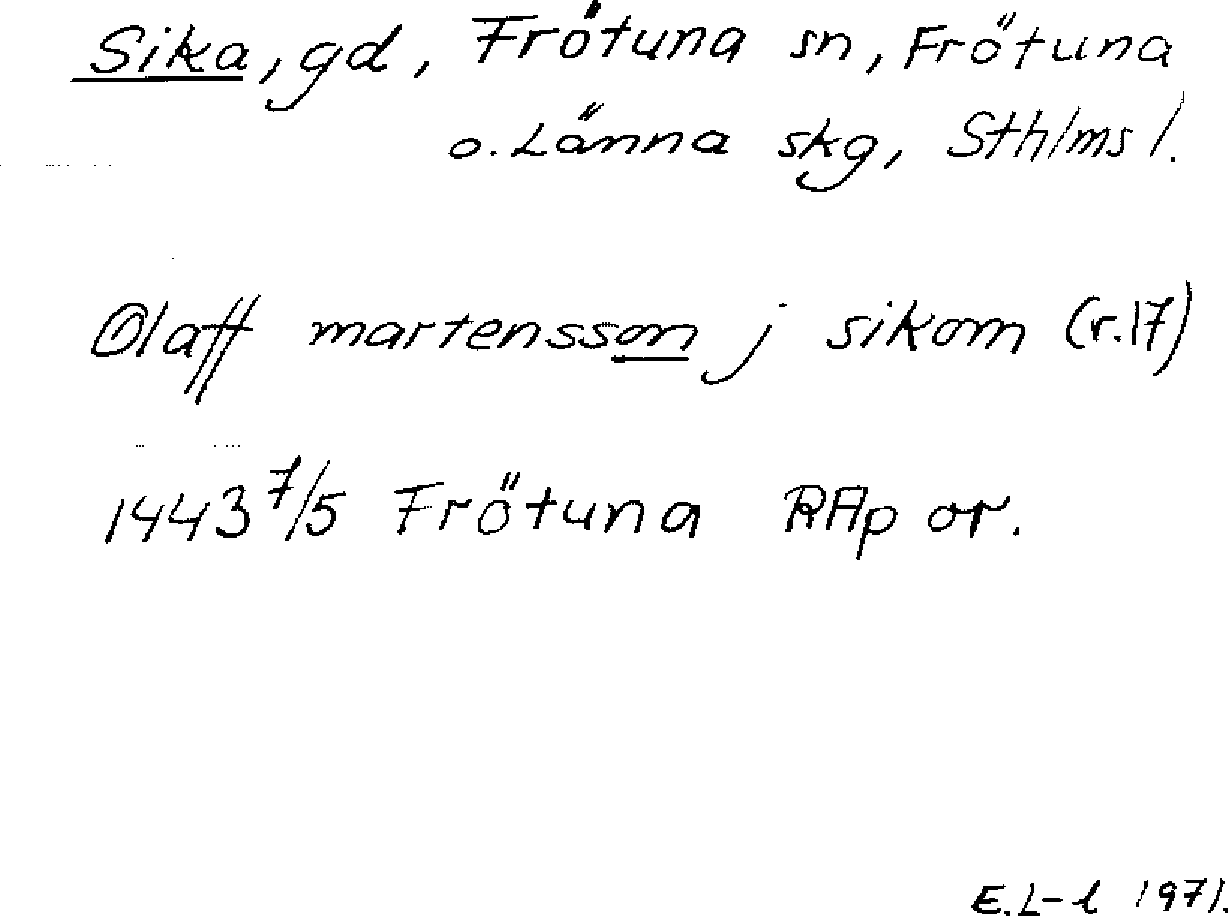 Sika, gd, Frötuna sn, Frötuna
o. Länna skg, Sthlms l.
Olaff martensson j sikom (r.17)
1443 7/5 Frötuna RAp or.
E.L-l 1971.